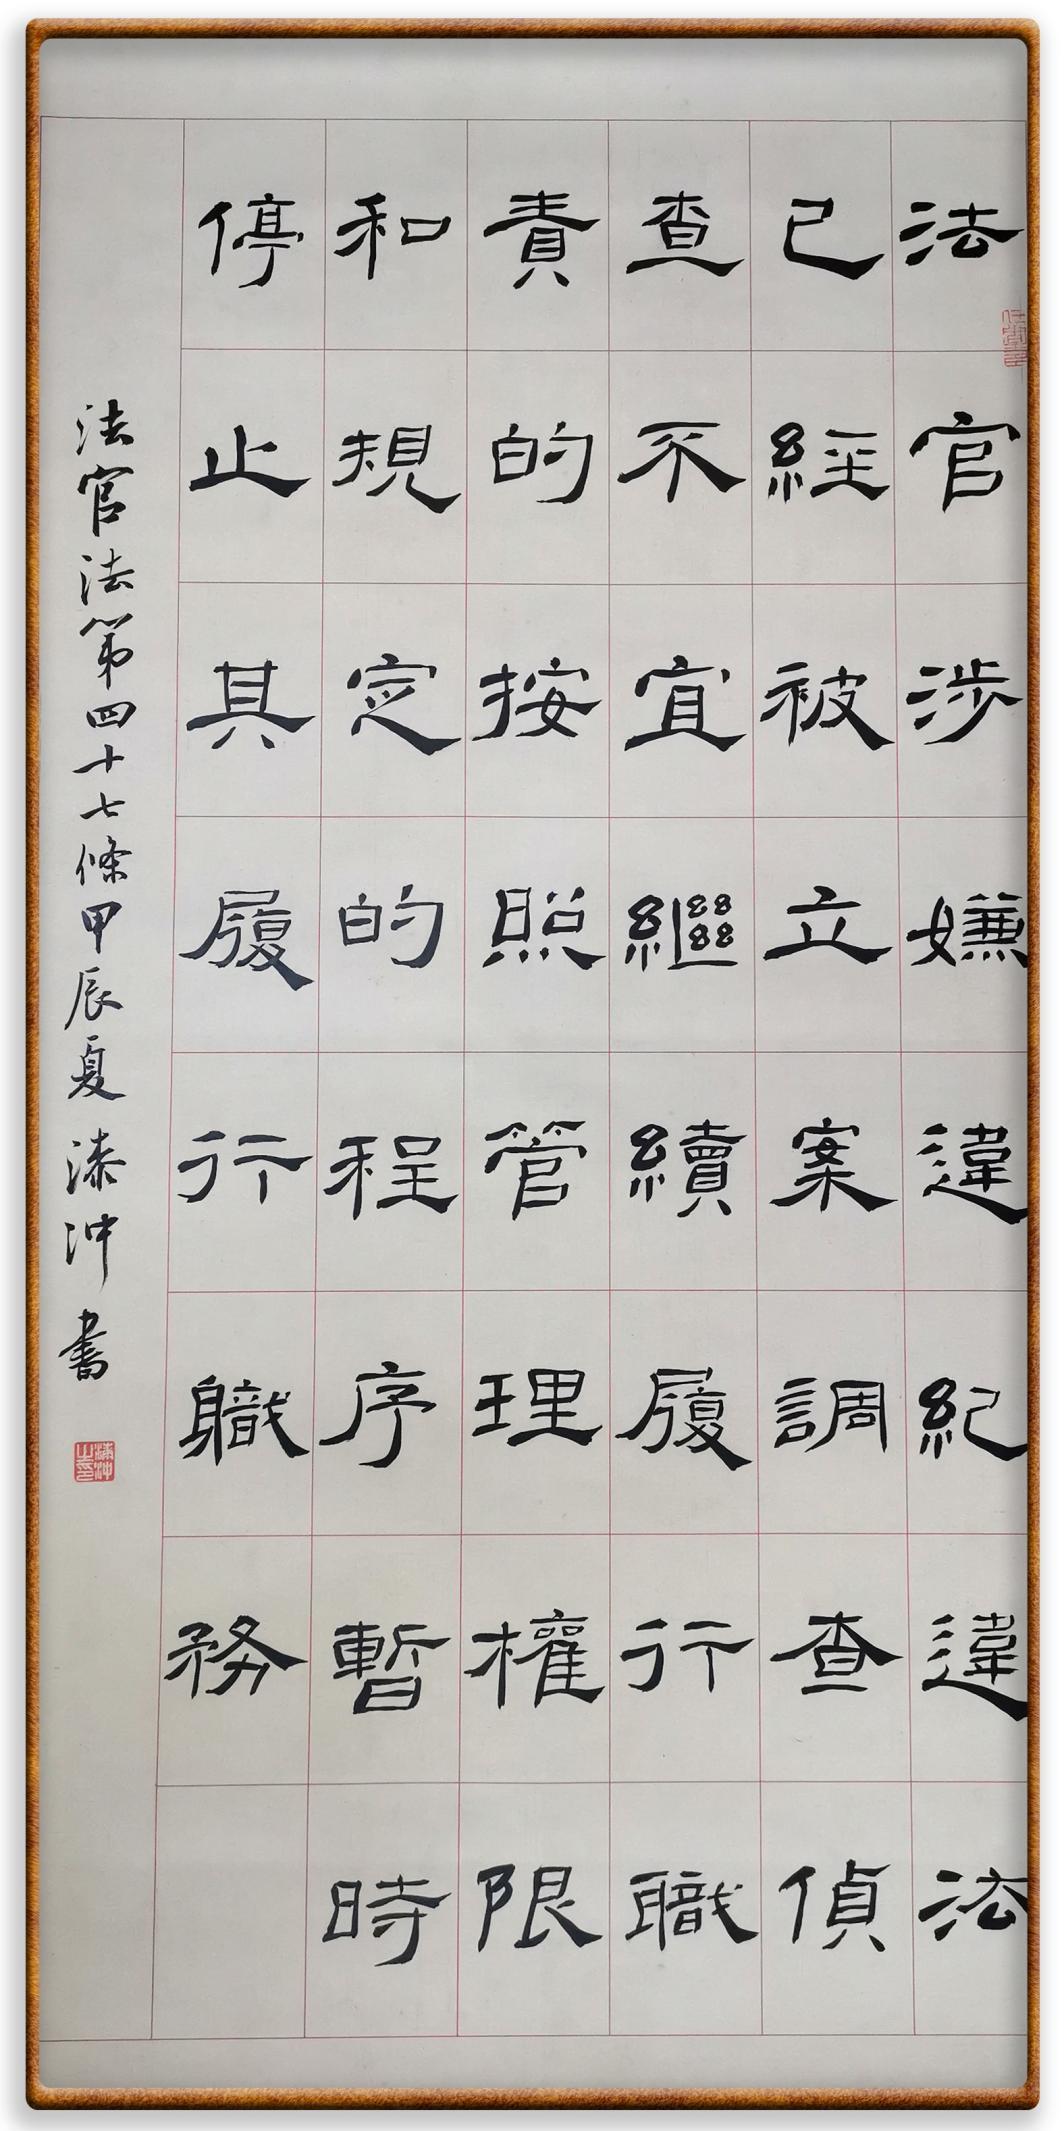 法官涉嫌違紀違法
已經被立案調查偵
查不宜繼續履行職
責的按照管理權限
和規定的程序暫時
停止其履行職務
法官法第四十七條甲辰夏漆沖書
漆沖之印